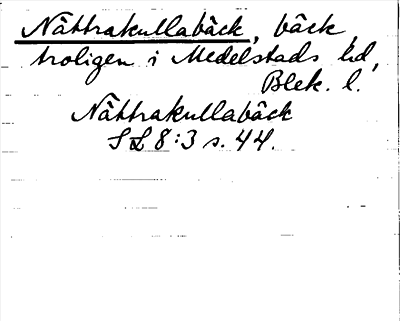 Nättrakullabäck, bäck,
troligen i Medelstads hd,
Blek. l.
Nättrakullabäck
SL 8:3 s. 44.